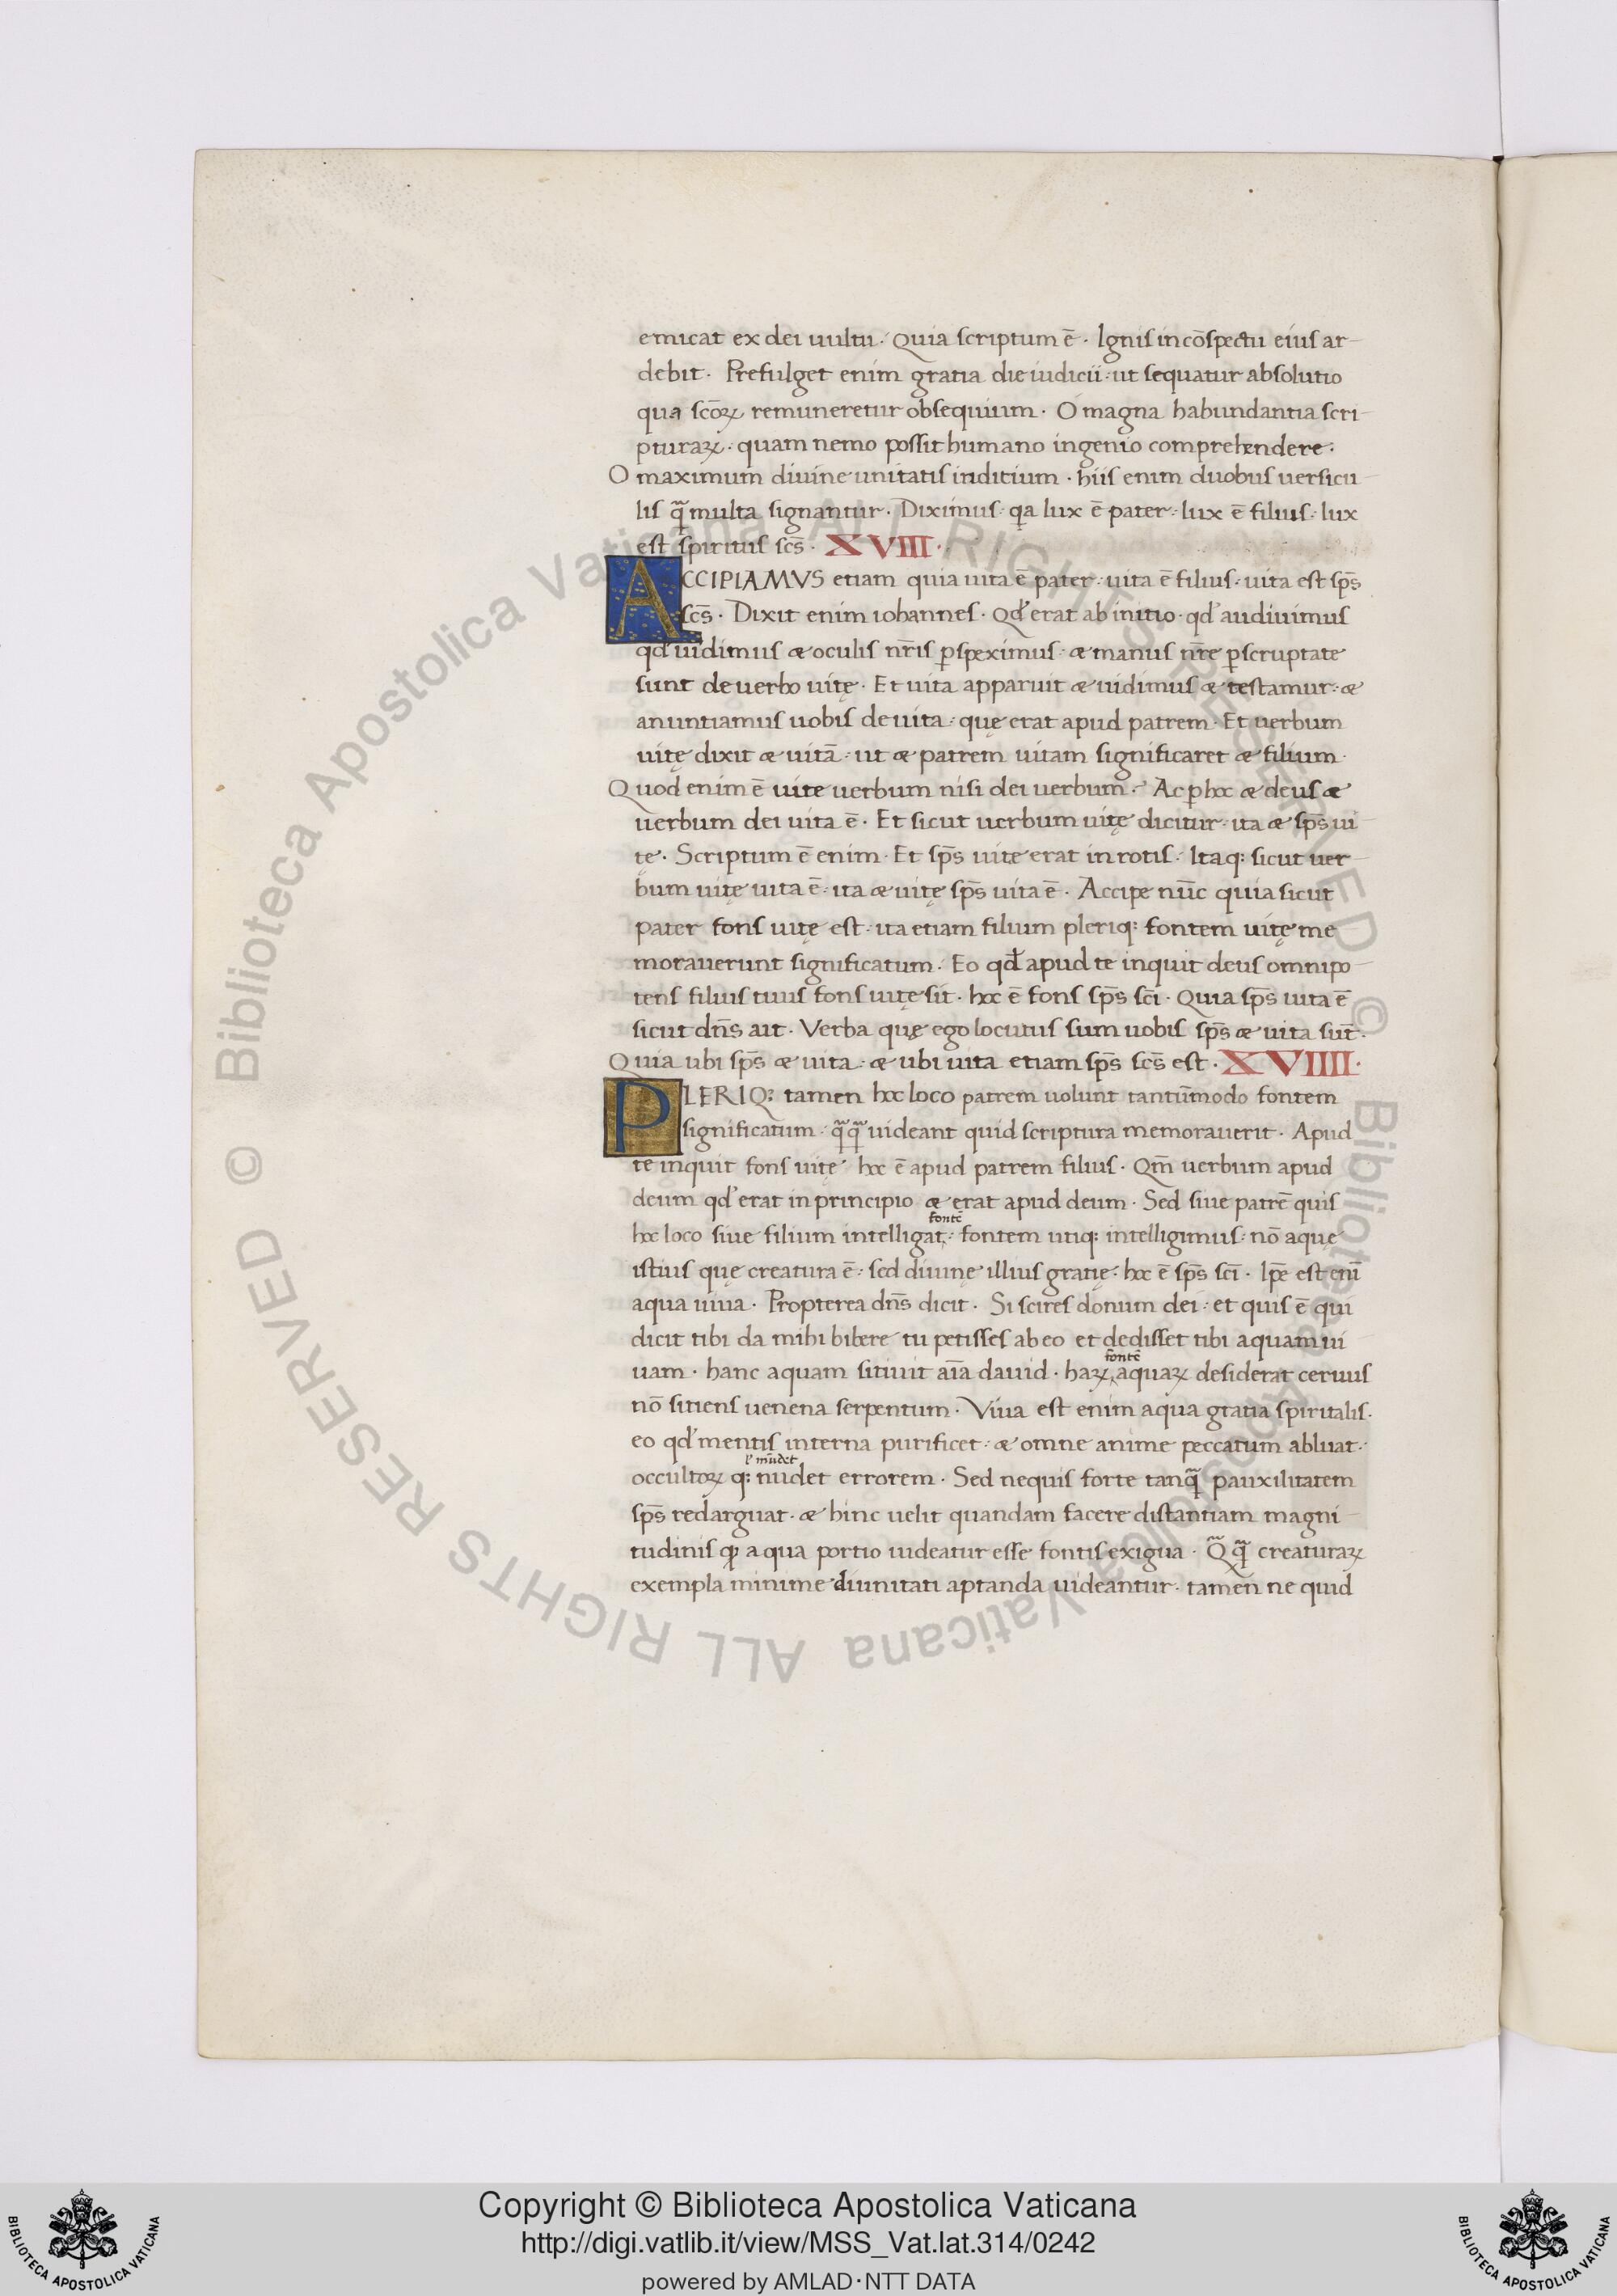 emicat ex dei uultu · Quia scriptum ē · Ignis in cōspectu eius ar-
debit · Prefulget enim gratia die iudicii · ut sequatur absolutio
qua scōꝝ remuneretur obsequium · O magna habundantia scri-
pturaꝝ · quam nemo possit humano ingenio comprehendere ·
O maximum diuine unitatis inditium · hiis enim duobus uersicu-
lis q̄ multa signantur · Diximus · qa lux ē pater · lux ē filius · lux
est spiritus scs̄ · XVIII ·
ACCIPIAMVS etiam quia uita ē pater · uita ē filius · uita est sp̄s
scs̄ · Dixit enim iohannes · Qd' erat ab initio · qd' audiuimus
qd' uidimus & oculis nr̄is ꝑspeximus · & manus nr̄e ꝑscruptate
sunt de uerbo uitę · Et uita apparuit & uidimus & testamur · &
anuntiamus uobis de uita · quę erat apud patrem · Et uerbum
uitę dixit & uitā · ut & patrem uitam significaret & filium ·
Quod enim ē uite uerbum nisi dei uerbum · Ac ꝑ hoc & deus &
uerbum dei uita ē · Et sicut uerbum uitę dicitur · ita & sp̄s ui-
tę · Scriptum ē enim · Et sp̄s uite erat in rotis · Itaq: sicut uer-
bum uitę uita ē · ita & uitę sp̄s uita ē · Accipe nūc quia sicut
pater fons uitę est · ita etiam filium pleriq: fontem uitę me
morauerunt significatum · Eo qd' apud te inquit deus omnipo-
tens filius tuus fons uitę sit · hoc ē fons sp̄s scī · Quia sp̄s uita ē
sicut dn̄s ait · Verba quę ego locutus sum uobis sp̄s & uita sūt ·
Quia ubi sp̄s & uita · & ubi uita etiam sp̄s scs̄ est · XVIIII ·
PLERIQ: tamen hoc loco patrem uolunt tantūmodo fontem
significatum · q̄q̄ uideant quid scriptura memorauerit · Apud
te inquit fons uitę hoc ē apud patrem filius · Qm̄ uerbum apud
deum qd' erat in principio & erat apud deum · Sed siue patrē quis
fontē
hoc loco siue filium intelligat · fontem utiq: intelligimus · nō aquę
istius quę creatura ē · sed diuinę illius gratię · hoc ē sp̄s scī · Ip̄e est enī
aqua uiua · Propterea dn̄s dicit · Si scires donum dei · et quis ē qui
dicit tibi da mihi bibere tu petisses ab eo et dedisset tibi aquam ui
fontē
uam · hanc aquam sitiuit aīa dauid · haꝝ aquaꝝ desiderat ceruus
nō sitiens uenena serpentum · Viua est enim aqua gratia spiritalis ·
eo qd' mentis interna purificet · & omne anime peccatum abluat ·
l' mūdet
occultoꝝ q: nudet errorem · Sed nequis forte tanq̄ pauxilitatem
sp̄s redarguat · & hinc uelit quandam facere distantiam magni-
tudinis ꝙ aqua portio uideatur esse fontis exigua · Q̄q̄ creaturaꝝ
exempla minime diuinitati aptanda uideantur · tamen ne quid
© Biblioteca Apostolica Vaticana ALL RIGHTS RESERVED © Biblioteca Apostolica Vaticana ALL RIGHTS RESERVED
Copyright © Biblioteca Apostolica Vaticana
http://digi.vatlib.it/view/MSS_Vat.lat.314/0242
powered by AMLAD·NTT DATA
BIBLIOTECA APOSTOLICA VATICANA
BIBLIOTECA APOSTOLICA VATICANA